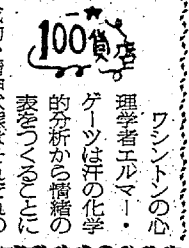 100貨店
ワシントンの心
理学者エルマー・
ゲーツは汗の化学
的分析から情緒の
表をつくることに